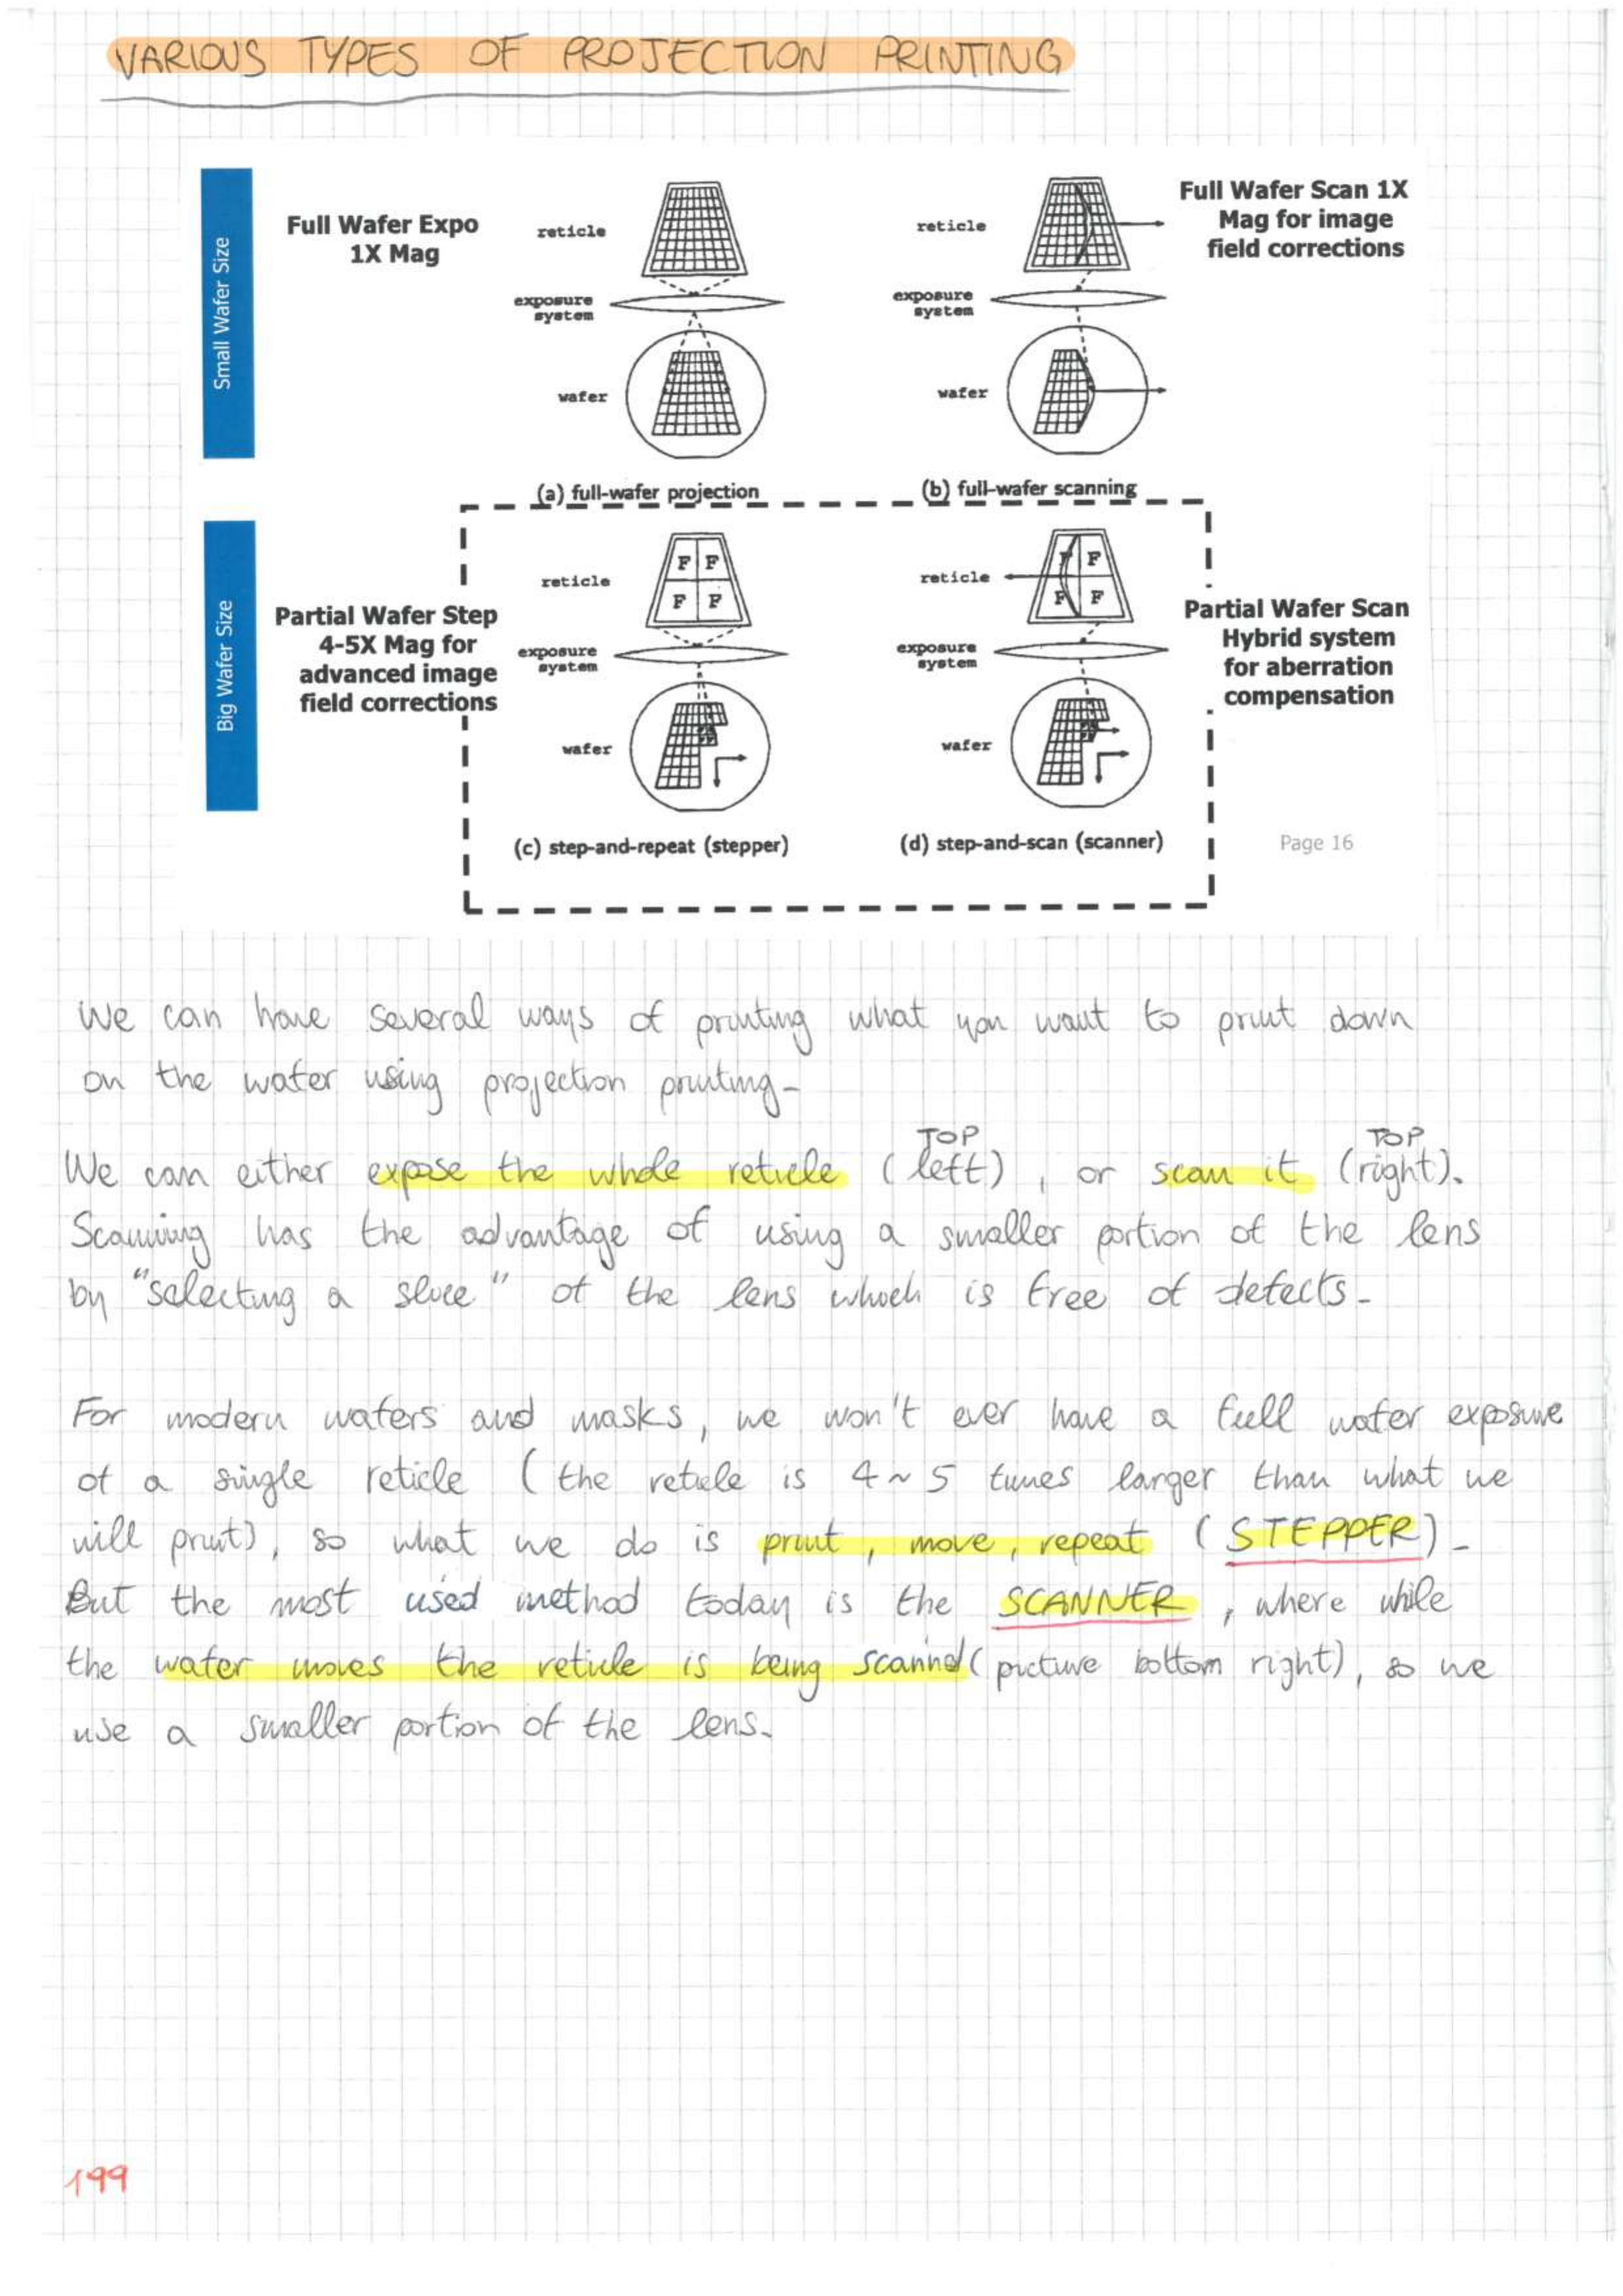 VARIOUS TYPES OF PROJECTION PRINTING
Small Wafer Size
Full Wafer Expo
1X Mag
reticle
exposure
system
wafer
(a) full-wafer projection
reticle
exposure
system
wafer
(b) full-wafer scanning
Full Wafer Scan 1X
Mag for image
field corrections
Big Wafer Size
Partial Wafer Step
4-5X Mag for
advanced image
field corrections
reticle
F F
F F
exposure
system
wafer
(c) step-and-repeat (stepper)
reticle
F F
F F
exposure
system
wafer
(d) step-and-scan (scanner)
Partial Wafer Scan
Hybrid system
for aberration
compensation
Page 16
We can have several ways of printing what you want to print down
on the wafer using projection printing-
TOP TOP
We can either expose the whole reticle (left), or scan it (right).
Scanning has the advantage of using a smaller portion of the lens
by "selecting a slice" of the lens which is free of defects-
For modern wafers and masks, we won't ever have a full wafer exposure
of a single reticle (the reticle is 4~5 times larger than what we
will print), so what we do is print, move, repeat (STEPPER)-
But the most used method today is the SCANNER, where while
the wafer moves the reticle is being scanned (picture bottom right), so we
use a smaller portion of the lens.
199